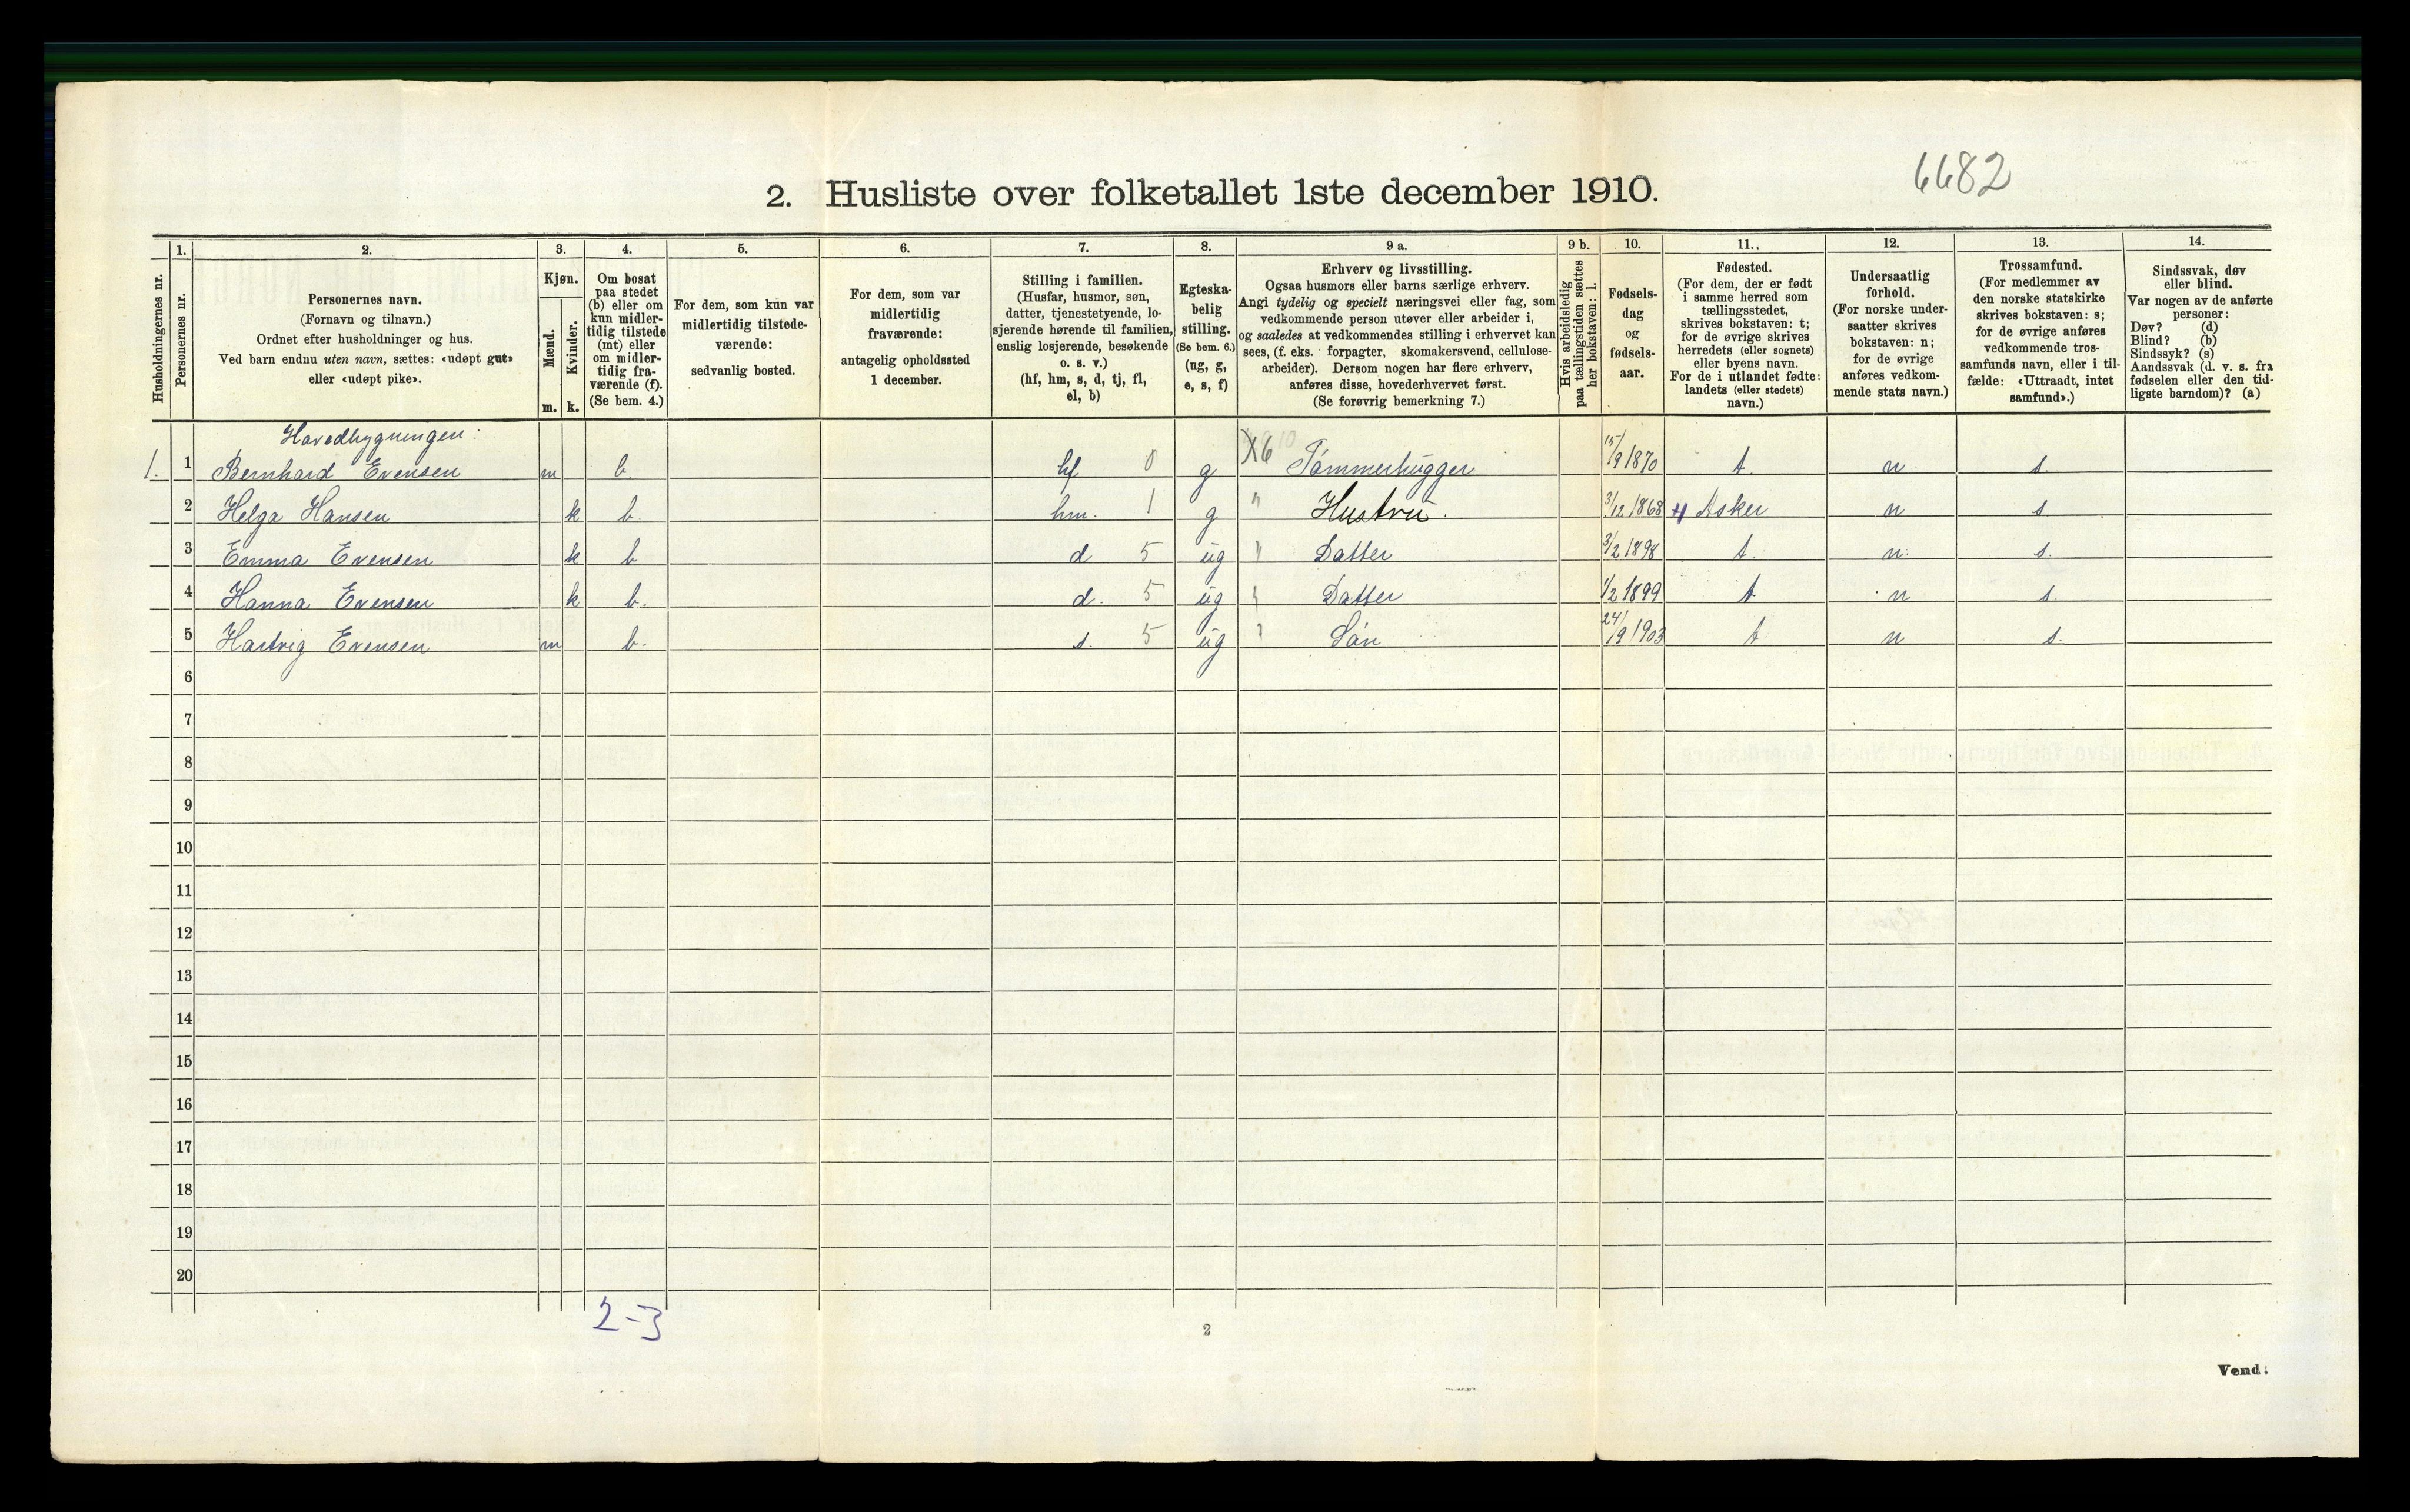 6682
2. Husliste over folketallet 1ste december 1910.
1. 2. 3. 4. 5. 6. 7. 8. 9 a. 9 b. 10. 11. 12. 13. 14.
Husholdningernes nr.
Personernes nr.
Personernes navn.
(Fornavn og tilnavn.)
Ordnet efter husholdninger og hus.
Ved barn endnu uten navn, sættes: «udøpt gut»
eller «udøpt pike».
Kjøn.
Mænd.
Kvinder.
m. k.
Om bosat
paa stedet
(b) eller om
kun midler-
tidig tilstede
(mt) eller
om midler-
tidig fra-
værende (f).
(Se bem. 4.)
For dem, som kun var
midlertidig tilstede-
værende:
sedvanlig bosted.
For dem, som var
midlertidig
fraværende:
antagelig opholdssted
1 december.
Stilling i familien.
(Husfar, husmor, søn,
datter, tjenestetyende, lo-
sjerende hørende til familien,
enslig losjerende, besøkende
o. s. v.)
(hf, hm, s, d, tj, fl,
el, b)
Egteska-
belig
stilling.
(Se bem. 6.)
(ug, g,
e, s, f)
Erhverv og livsstilling.
Ogsaa husmors eller barns særlige erhverv.
Angi tydelig og specielt næringsvei eller fag, som
vedkommende person utøver eller arbeider i,
og saaledes at vedkommendes stilling i erhvervet kan
sees, (f. eks. forpagter, skomakersvend, cellulose-
arbeider). Dersom nogen har flere erhverv,
anføres disse, hovederhvervet først.
(Se forøvrig bemerkning 7.)
Hvis arbeidsledig
paa tællingstiden sættes
her bokstaven: l.
Fødsels-
dag
og
fødsels-
aar.
Fødested.
(For dem, der er født
i samme herred som
tællingsstedet,
skrives bokstaven: t;
for de øvrige skrives
herredets (eller sognets)
eller byens navn.
For de i utlandet fødte:
landets (eller stedets)
navn.)
Undersaatlig
forhold.
(For norske under-
saatter skrives
bokstaven: n;
for de øvrige
anføres vedkom-
mende stats navn.)
Trossamfund.
(For medlemmer av
den norske statskirke
skrives bokstaven: s;
for de øvrige anføres
vedkommende tros-
samfunds navn, eller i til-
fælde: «Uttraadt, intet
samfund».)
Sindssvak, døv
eller blind.
Var nogen av de anførte
personer:
Døv? (d)
Blind? (b)
Sindssyk? (s)
Aandssvak (d. v. s. fra
fødselen eller den tid-
ligste barndom)? (a)
Hovedbygningen:
1. 1 Bernhard Evensen m b. hf 0 g X6 Tømmerhugger 15/9 1870 t. n. s.
2 Helga Hansen k b. hm. 1 g " Hustru. 3/12 1868 Asker n s
3 Emma Evensen k b d 5 ug " Datter 3/2 1898 t. n. s.
4 Hanna Evensen k b. d. 5 ug " Datter 1/2 1899 t n s.
5 Hartvig Evensen m b. s. 5 ug " Søn 24/9 1903 t n s.
6
7
8
9
10
11
12
13
14
15
16
17
18
19
20
2-3
2
Vend.